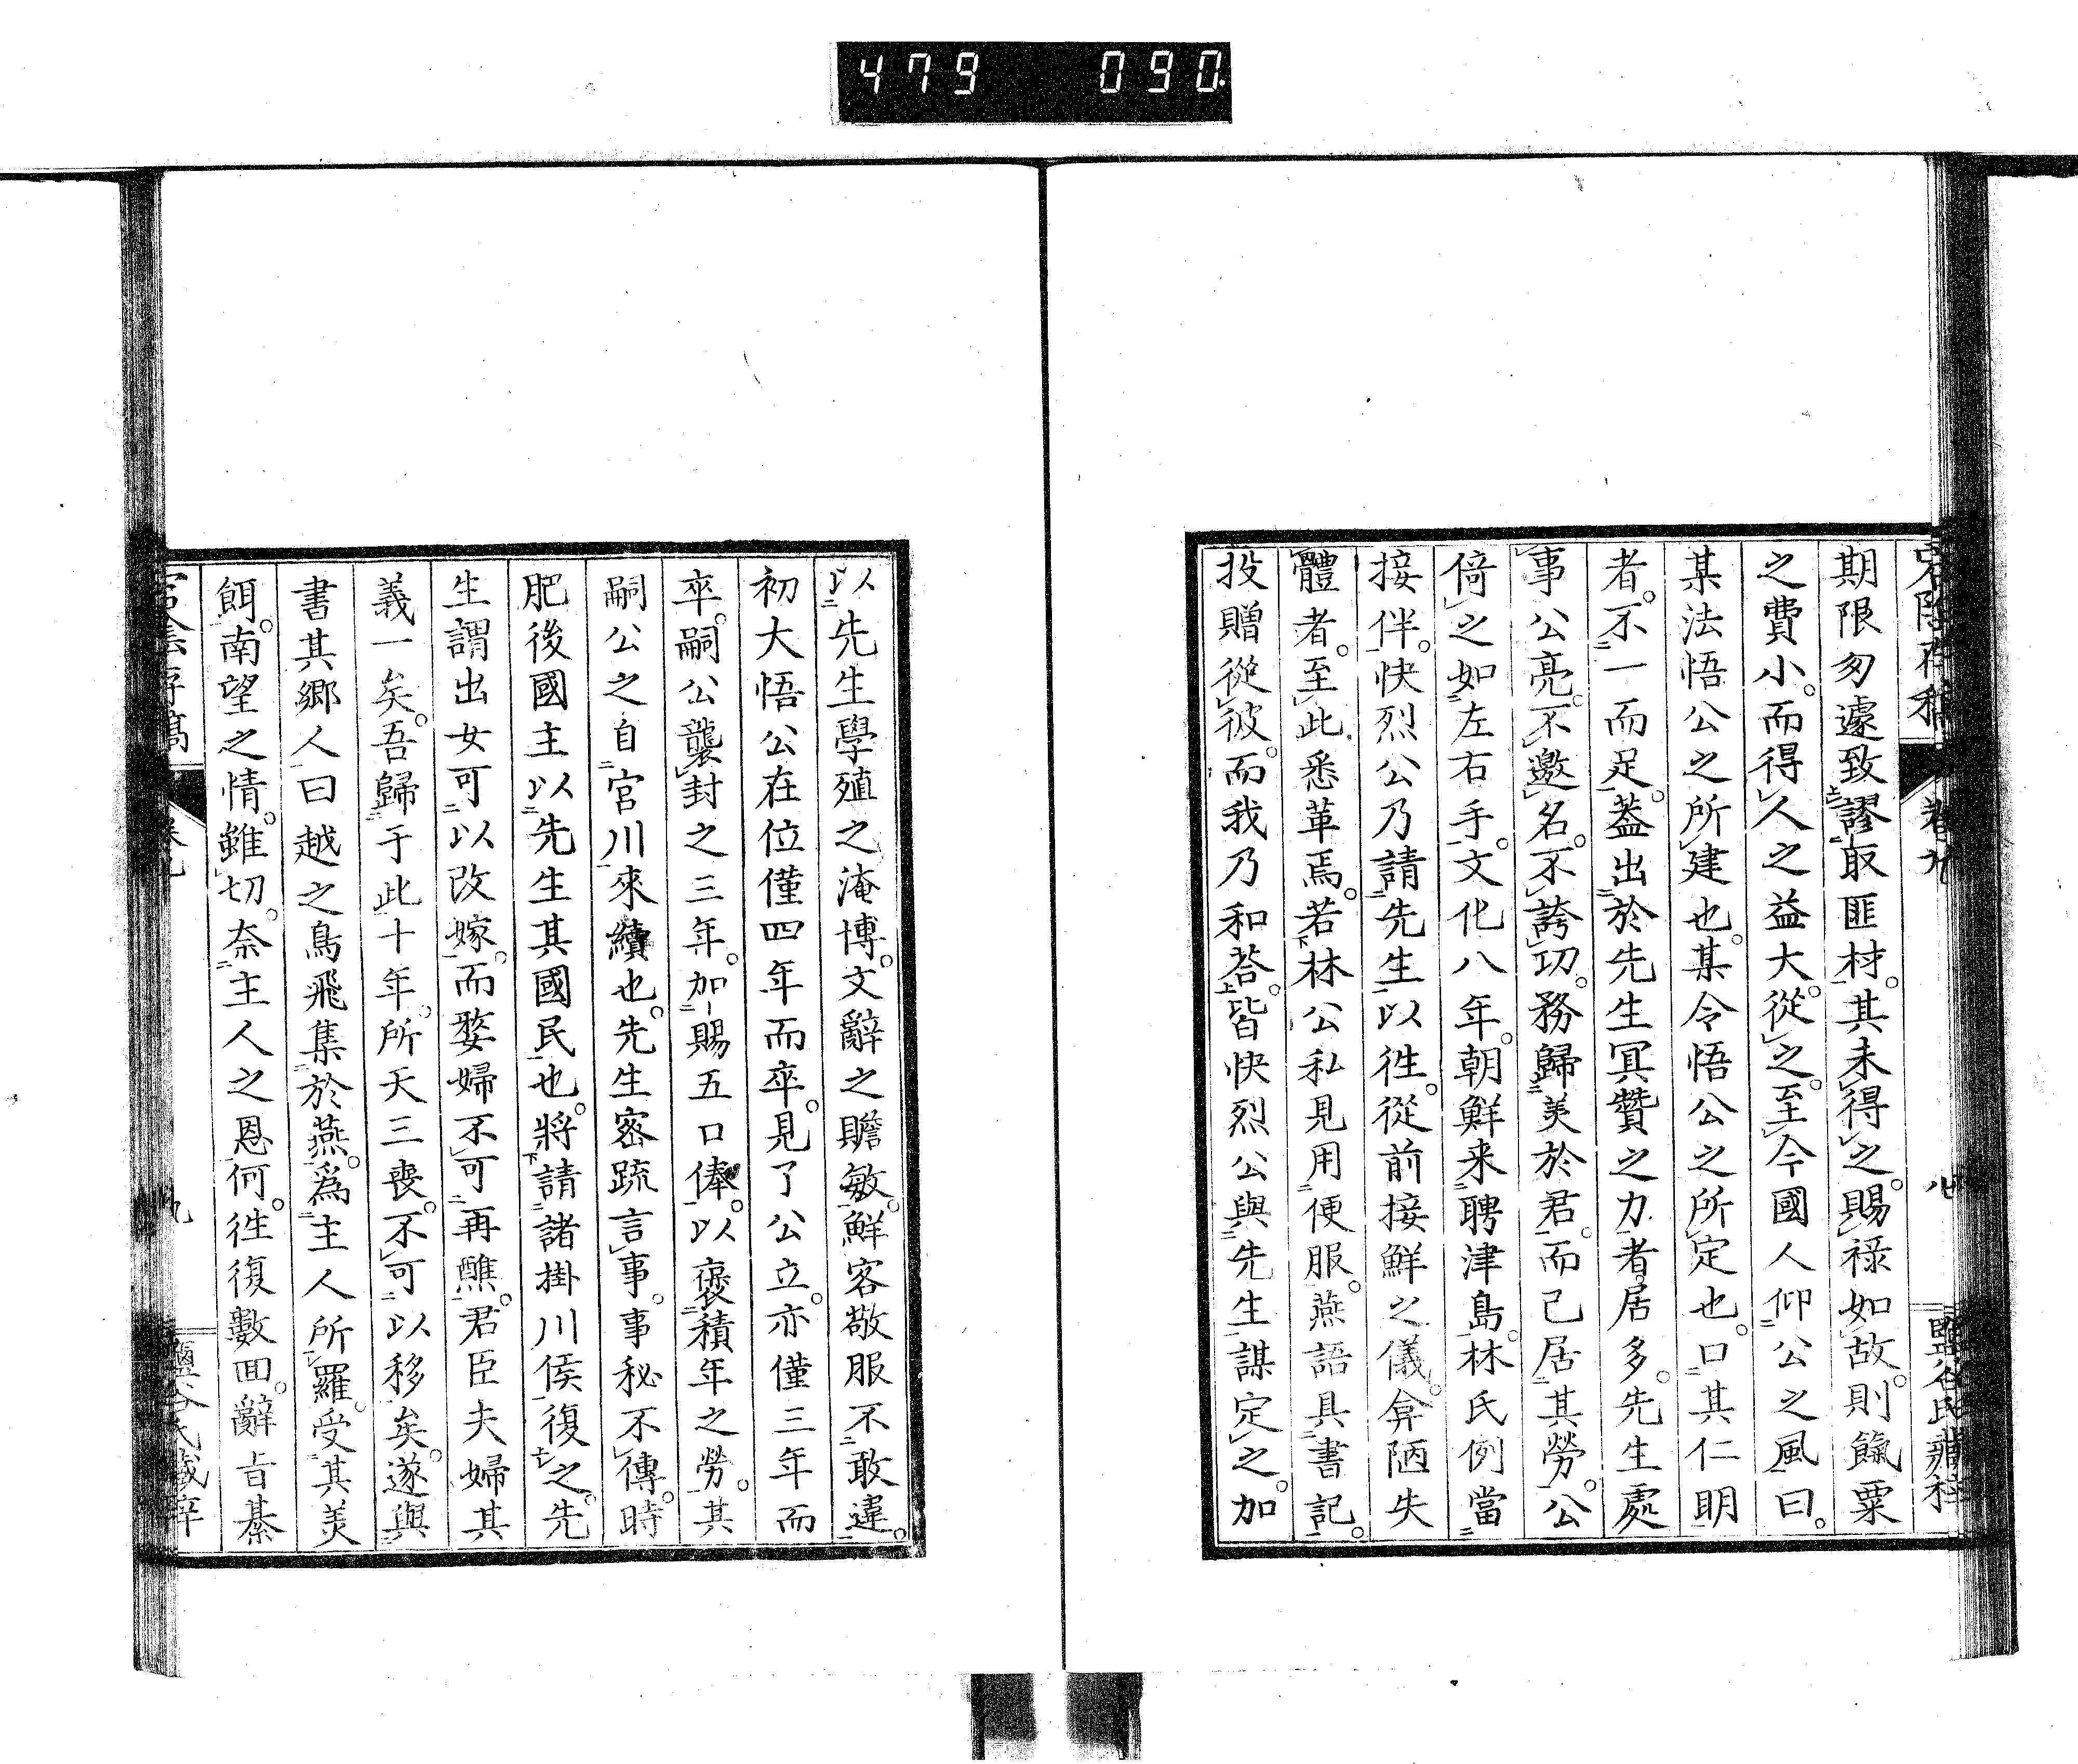 479 090
宕陰存稿 卷九 八 鹽谷氏藏梓
期限匆遽致謬取匪材。其未得之賜。祿如故。則餼粟
之費小。而得人之益大。從之。至今國人仰公之風曰。
某法悟公之所建也。某令悟公之所定也。口其仁明
者。不一而足。蓋出於先生冥贊之力者居多。先生處
事公亮。不邀名。不誇功。務歸美於君。而己居其勞。公
倚之如左右手。文化八年。朝鮮来聘津島。林氏例當
接伴。快烈公乃請先生以徃。從前接鮮之儀。弇陋失
體者。至此悉革焉。若林公私見用便服。燕語具書記。
投贈從彼。而我乃和荅。皆快烈公與先生謀定之。加
以先生學殖之淹博。文辭之贍敏。鮮客敬服不敢違。
初大悟公在位僅四年而卒。見了公立。亦僅三年而
卒。嗣公襲封之三年。加賜五口俸。以褒積年之勞。其
嗣公之自宮川來續也。先生密疏言事。事秘不傳。時
肥後國主以先生其國民也。將請諸掛川侯復之。先
生謂出女可以改嫁。而嫠婦不可再醮。君臣夫婦其
義一矣。吾歸于此十年。所天三喪。不可以移矣。遂與
書其鄉人曰越之鳥飛集於燕。爲主人所羅。受其美
餌。南望之情。雖切。奈主人之恩何。徃復數回。辭旨綦
宕陰存稿 卷九 九 鹽谷氏藏梓